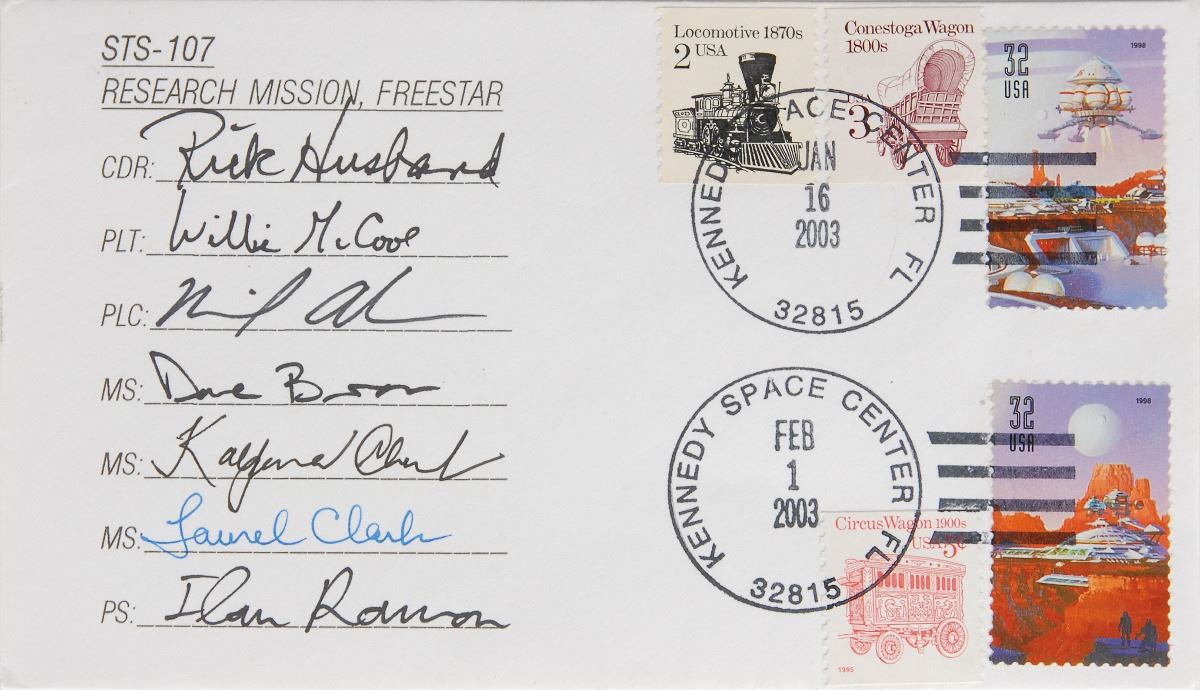 STS-107
RESEARCH MISSION, FREESTAR
CDR: Rick Husband
PLT: Willie McCool
PLC:
MS: Dave Brown
MS: Kalpana Chawla
MS: Laurel Clark
PS: Ilan Ramon
Locomotive 1870s
2 USA
Conestoga Wagon
1800s
USA
3c
32
USA
1998
KENNEDY SPACE CENTER FL
JAN
16
2003
32815
32
USA
1998
KENNEDY SPACE CENTER FL
FEB
1
2003
32815
Circus Wagon 1900s
USA 5c
1995